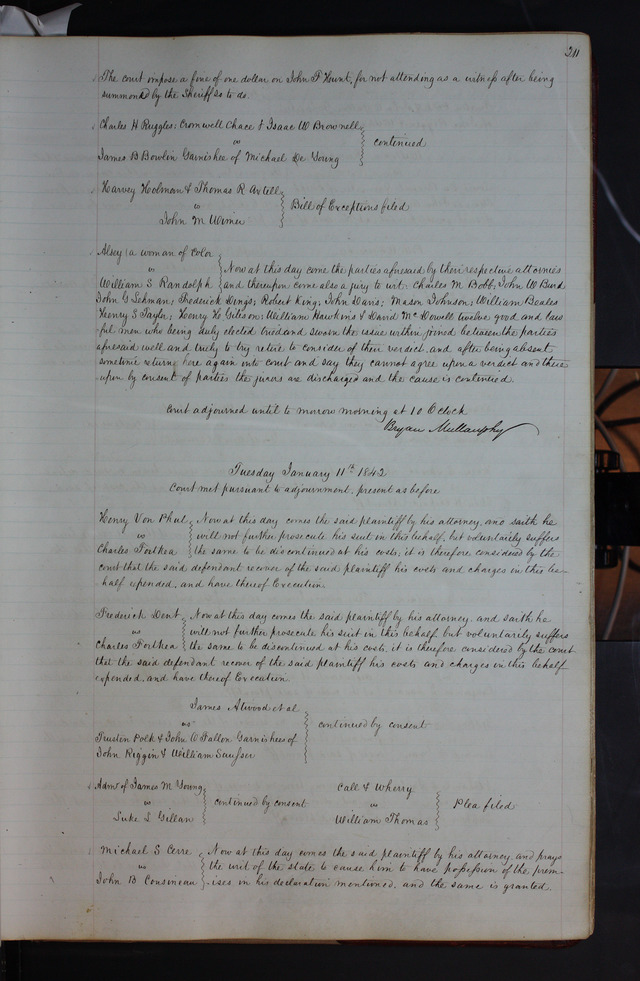 211
The court impose a fine of one dollar on John F Hunt, for not attending as a witness after being
summoned by the Sheriff so to do.
Charles H Ruggles; Cromwell Chace & Isaac W Brownell
vs
continued
James B Bowlin Garnishee of Michael De Young
Harvey Holman & Thomas R Axtell
vs
Bill of Exceptions filed
John M Wimer
Alsey (a woman of color
vs
Now at this day come the parties aforesaid by their respective attornies
William S Randolph
and thereupon come also a jury to wit: Charles M Bobb; John W Burd
John G Lehman; Frederick Dings; Robert King; John Davis; Mason Johnson; William Beales
Henry S Taylor; Henry H Gibson; William Hawkins & David McDowell twelve good and law
ful men who being duly elected tried and sworn the issue within joined between the parties
aforesaid well and truly to try retire to consider of their verdict. and after being absent
sometime return here again into court and say they cannot agree upon a verdict and there
upon by consent of parties the jurors are discharged and the cause is continued.
Court adjourned until to morrow morning at 10 O'clock
Bryan Mullanphy
Tuesday January 11th 1842
Court met pursuant to adjournment, present as before
Henry Von Phul
Now at this day comes the said plaintiff by his attorney, and saith he
vs
will not further prosecute his suit in this behalf, but voluntarily suffers
Charles Forthea
the same to be discontinued at his costs, it is therefore considered by the
court that the said defendant recover of the said plaintiff his costs and charges in this be-
half expended, and have thereof Execution
Frederick Dent
Now at this day comes the said plaintiff by his attorney, and saith he
vs
will not further prosecute his suit in this behalf but voluntarily suffers
Charles Forthea
the same to be discontinued at his costs, it is therefore considered by the court
that the said defendant recover of the said plaintiff his costs and charges in this behalf
expended, and have thereof Execution.
James Atwood et al
vs
continued by consent
Trustin Polk & John O Fallon Garnishees of
John Riggin & William
Admr of James M Young
vs
continued by consent
Luke L Gillan
Call & Wherry
vs
Plea filed
William Thomas
Michael S Cerre
Now at this day comes the said plaintiff by his attorney, and prays
vs
the writ of the state to cause him to have possession of the prem-
John B
ises in his declaration mentioned, and the same is granted.